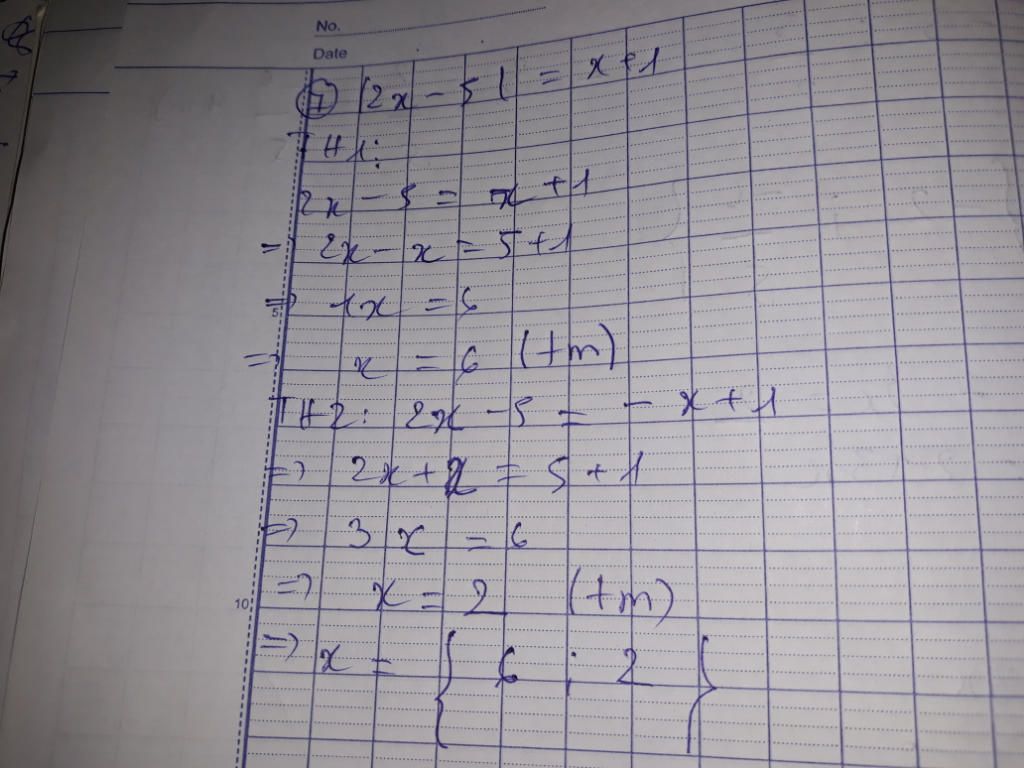 No.
Date
7 |2x - 5| = x + 1
TH1:
2x - 5 = x + 1
=> 2x - x = 5 + 1
5
=> 1x = 6
=> x = 6 (tm)
TH2: 2x - 5 = - x + 1
=> 2x + x = 5 + 1
=> 3x = 6
10
=> x = 2 (tm)
=> x = { 6 ; 2 }